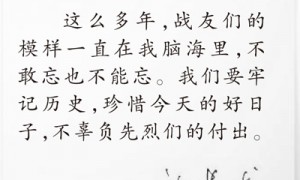 这么多年，战友们的
模样一直在我脑海里，不
敢忘也不能忘。我们要牢
记历史，珍惜今天的好日
子，不辜负先烈们的付出。